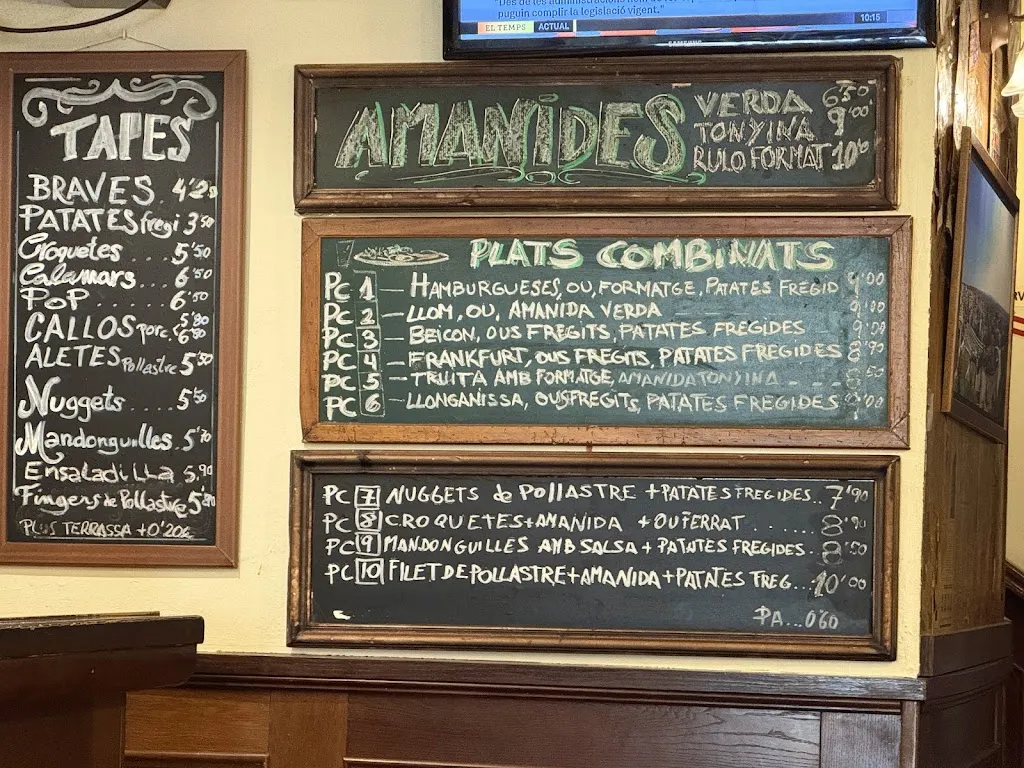 puguin complir la legislació vigent."
EL TEMPS ACTUAL 10:15
SAMSUNG
TAPES
BRAVES. 4'20
PATATES fregi 3'50
Croquetes .... 5'50
Calamars .... 6'50
POP ..... 6'50
CALLOS porc. 5'80 6'80
ALETES Pollastre 5'50
Nuggets ..... 5'50
Mandonguilles. 5'70
ENSALADILLA 5'90
Fingers de Pollastre 5'80
PLUS TERRASSA +0'20€
AMANIDES
VERDA 6'50
TONYINA 9'00
RULO FORMAT 10'00
PLATS COMBINATS
PC 1 — HAMBURGUESES, OU, FORMATGE, PATATES FREGID 9'00
PC 2 — LLOM, OU, AMANIDA VERDA 9'00
PC 3 — BEICON, OUS FREGITS, PATATES FREGIDES
PC 4 — FRANKFURT, OUS FREGITS, PATATES FREGIDES 8'90
PC 5 — TRUITA AMB FORMATGE, AMANIDA TONYINA
PC 6 — LLONGANISSA, OUS FREGITS, PATATES FREGIDES
PC 7 NUGGETS de POllASTRE + PATATES FREGIDES.. 7'90
PC 8 CROQUETES + AMANIDA + OU FERRAT ...... 8'90
PC 9 MANDONGUILLES AMB SALSA + PATATES FREGIDES. 8'50
PC 10 FILET DE POLLASTRE + AMANIDA + PATATES FREG... 10'00
PA... 0'60